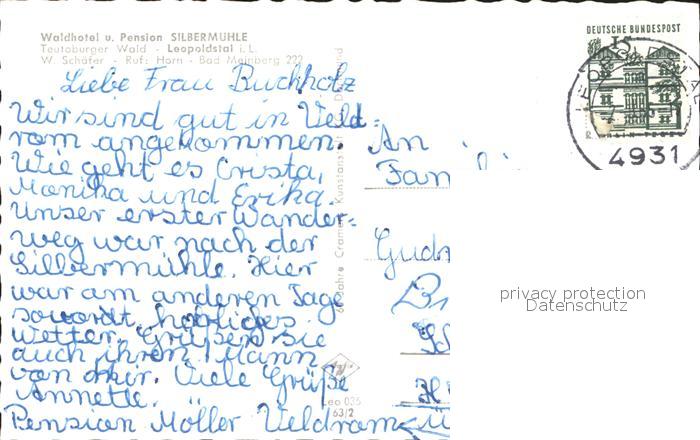 Waldhotel u. Pension SILBERMÜHLE
Teutoburger Wald - Leopoldstal i. L.
W. Schäfer - Ruf: Horn - Bad Meinberg 222
Liebe Frau Buchholz
Wir sind gut in Veld=
rom angekommen.
Wie geht es Crista,
Monika und Erika.
Unser erster Wander=
weg war nach der
Silbermühle. Hier
war am anderen Tage
Wetter. Grüßen Sie
auch ihren Mann
von mir. Viele Grüße
Annette.
Pension Möller Veldrom
An
Fam
DEUTSCHE BUNDESPOST
15
4931
Cramers Kunstanstalt
Leo 035
63/2
privacy protection
Datenschutz